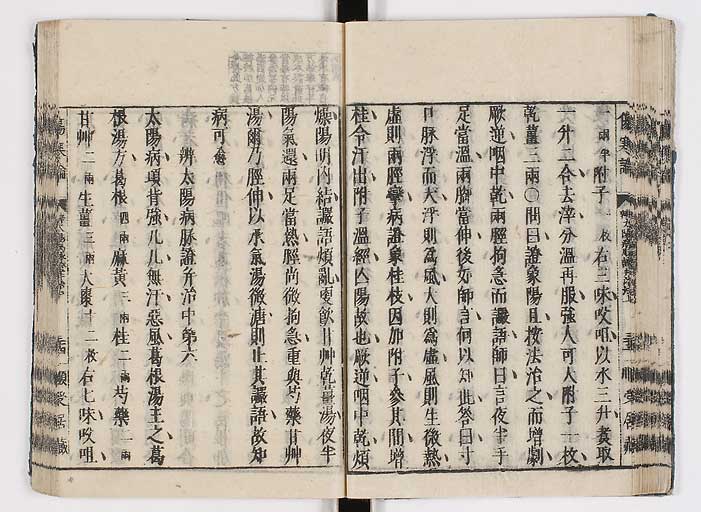 一兩半附子一枚右三味㕮咀以水三升煑取
一升二合去滓分溫再服強人可大附子一枚
乾薑三兩○問曰證象陽旦按法治之而增劇
厥逆咽中乾兩脛拘急而讝語師曰言夜半手
足當溫兩脚當伸後如師言何以知此答曰寸
口脉浮而大浮則爲風大則爲虛風則生微熱
虛則兩脛攣病證象桂枝因加附子參其間增
桂令汗出附子溫經亾陽故也厥逆咽中乾煩
燥陽明內結讝語煩亂更飲甘艸乾薑湯夜半
陽氣還兩足當熱脛尚微拘急重與芍藥甘艸
湯爾乃脛伸以承氣湯微溏則止其讝語故知
病可愈
辨太陽病脉證并治中第六
太陽病項背強几几無汗惡風葛根湯主之葛
根湯方葛根四兩麻黃三兩桂二兩芍藥二兩
甘艸二兩生薑三兩大棗十二枚右七味㕮咀
傷寒論
傷寒論